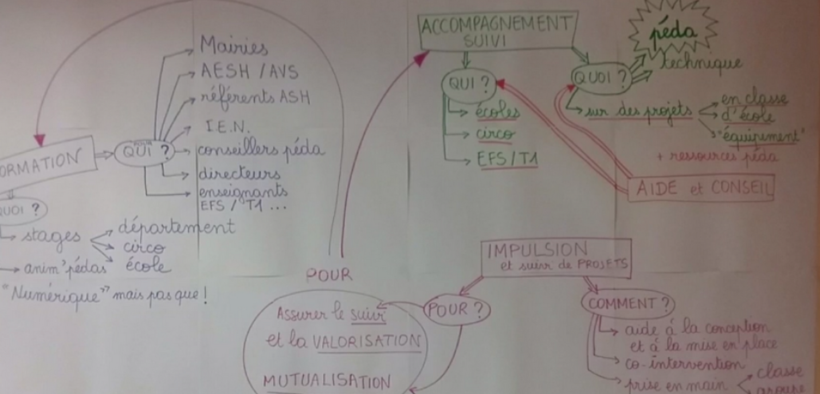 Mairies
AESH / AVS
référents ASH
I.E.N.
conseillers péda
directeurs
enseignants
EFS / T1 ...
ORMATION
QUI ?
QUOI ?
stages
département
circo
école
anim'pédas
"Numérique" mais pas que !
ACCOMPAGNEMENT
SUIVI
QUI ?
écoles
circo
EFS / T1
QUOI ?
péda
technique
sur des projets
en classe
d'école
"équipement"
+ ressources péda
AIDE et CONSEIL
IMPULSION
et suivi de PROJETS
POUR ?
COMMENT ?
aide à la conception
et à la mise en place
co-intervention
prise en main
classe
POUR
Assurer le suivi
et la VALORISATION
MUTUALISATION